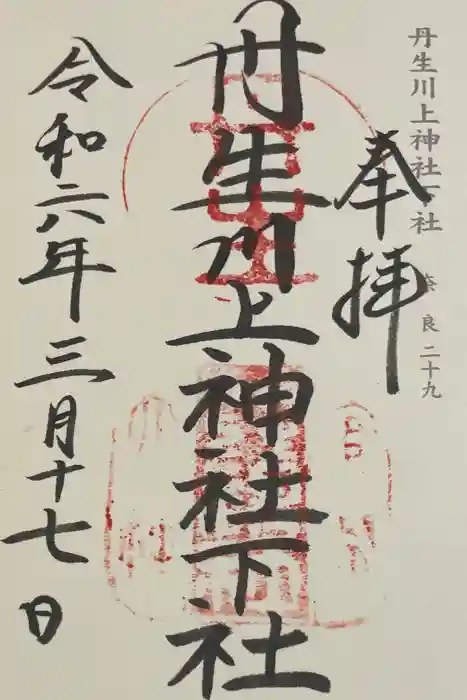 丹生川上神社下社
奈良 二十九
奉拝
丹生川上神社下社
令和六年三月十七日